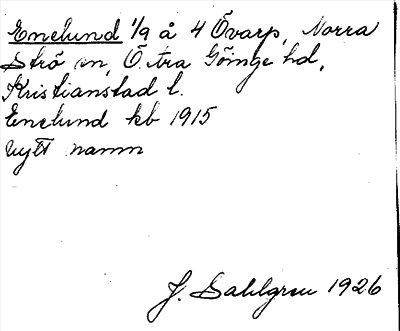 Enelund 1/9 å 4 Övarp, Norra
Strö sn, Ö.tra Göinge hd,
Kristianstad l.
Enelund kb 1915
nytt namn
J. Sahlgren 1926